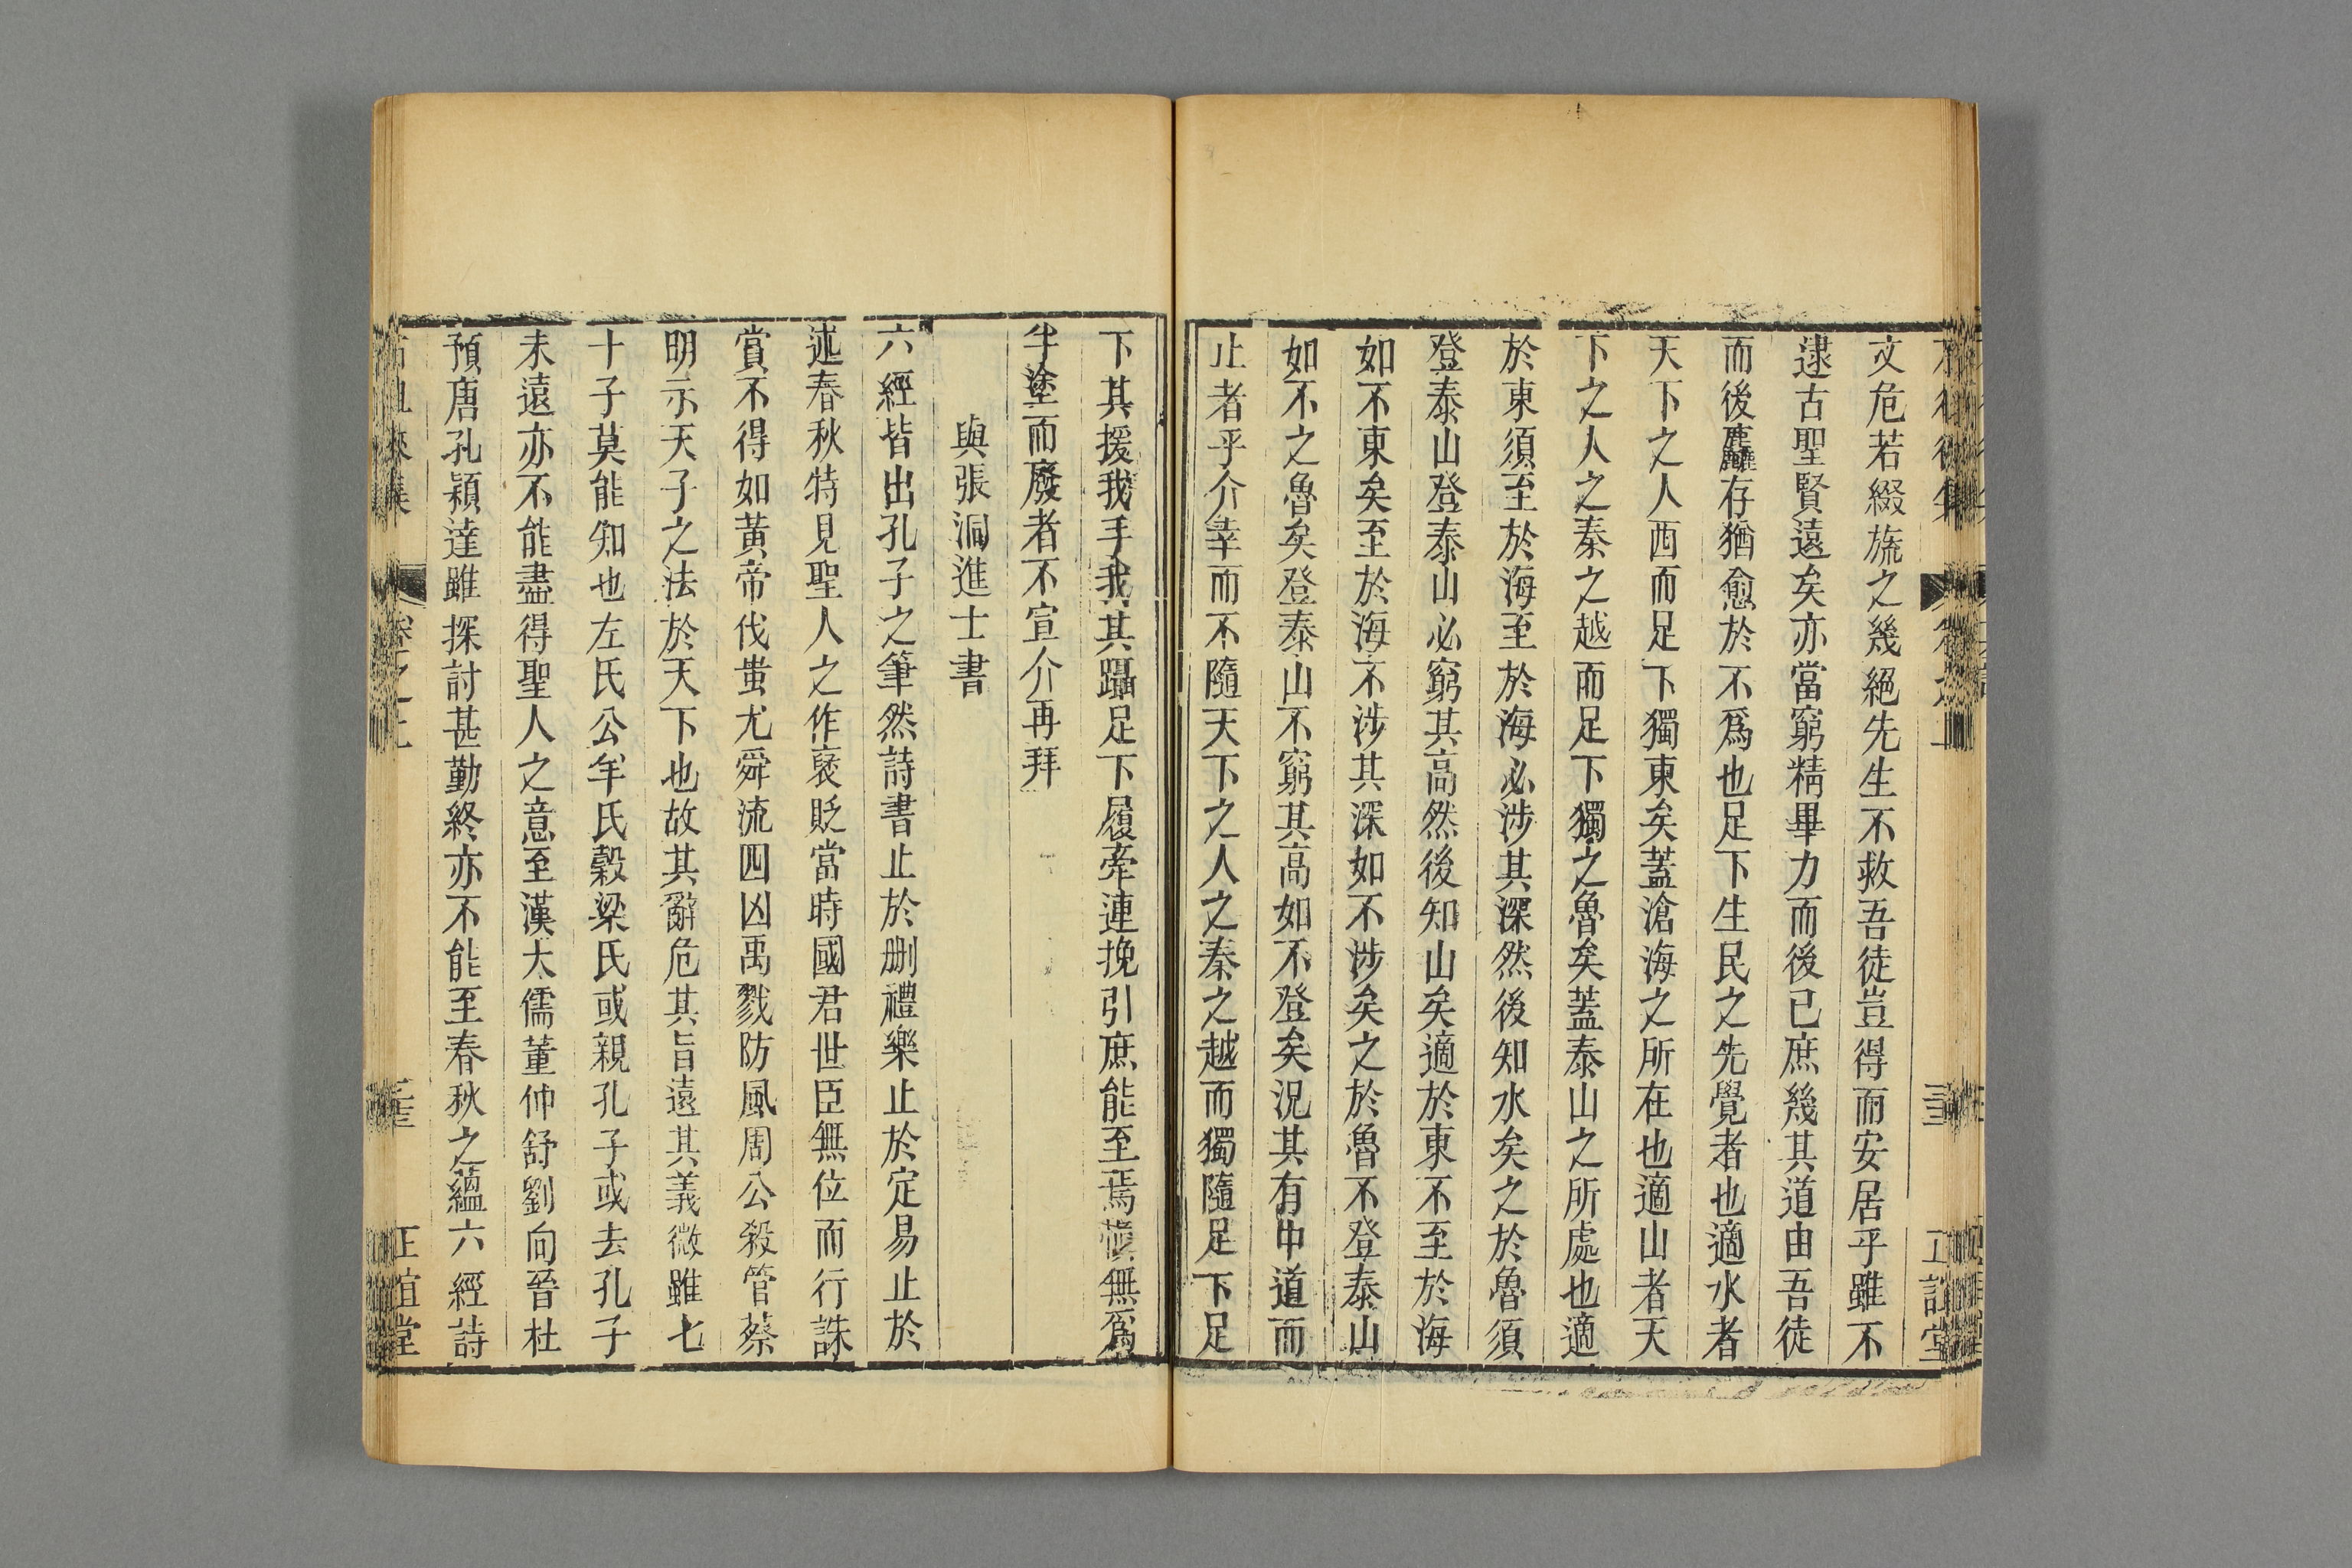 文危若綴旒之幾絕先生不救吾徒豈得而安居乎雖不
逮古聖賢遠矣亦當窮精畢力而後已庶幾其道由吾徒
而後麤存猶愈於不爲也足下生民之先覺者也適水者
天下之人西而足下獨東矣蓋滄海之所在也適山者天
下之人之秦之越而足下獨之魯矣蓋泰山之所處也適
於東須至於海至於海必涉其深然後知水矣之於魯須
登泰山登泰山必窮其高然後知山矣適於東不至於海
如不東矣至於海不涉其深如不涉矣之於魯不登泰山
如不之魯矣登泰山不窮其高如不登矣況其有中道而
止者乎介幸而不隨天下之人之秦之越而獨隨足下足
下其援我手我其躡足下履牽連挽引庶能至焉愼無爲
半塗而廢者不宣介再拜
與張洞進士書
六經皆出孔子之筆然詩書止於刪禮樂止於定易止於
述春秋特見聖人之作褒貶當時國君世臣無位而行誅
賞不得如黃帝伐蚩尤舜流四凶禹戮防風周公殺管蔡
明示天子之法於天下也故其辭危其旨遠其義微雖七
十子莫能知也左氏公羊氏穀梁氏或親孔子或去孔子
未遠亦不能盡得聖人之意至漢大儒董仲舒劉向晉杜
預唐孔穎達雖探討甚勤終亦不能至春秋之蘊六經詩
石徂徠集
卷之上
正誼堂